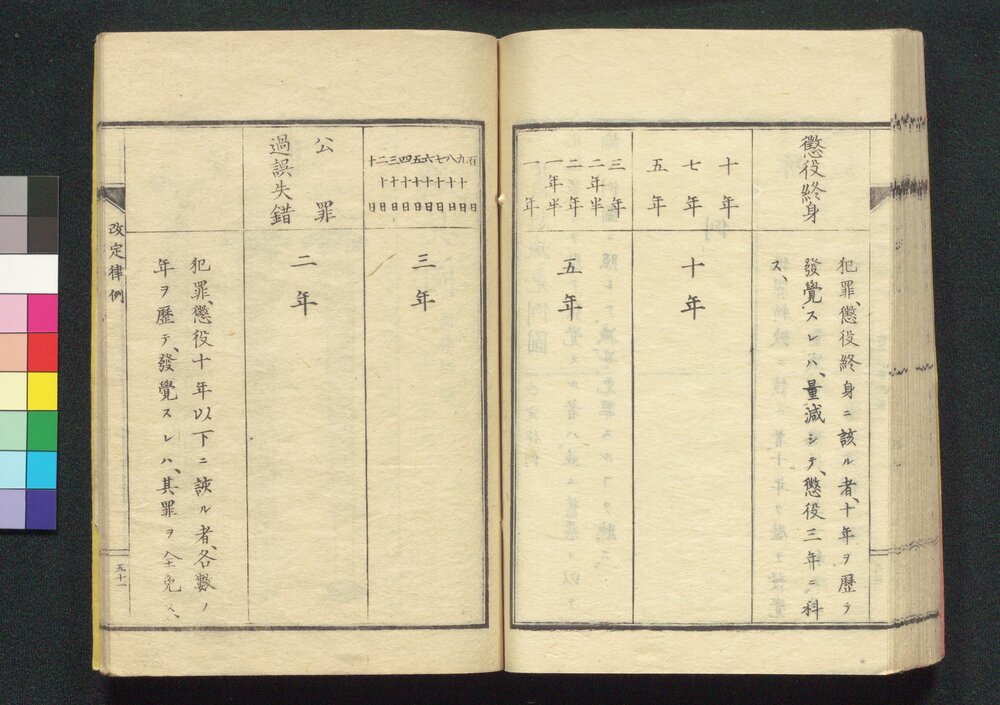 懲役終身
犯罪、懲役終身ニ該ル者、十年ヲ歴テ
發覺スレハ、量減シテ、懲役三年ニ科
ス、
十年
七年
五年
十年
三年
二年半
二年
一年半
一年
五年
百日
九十日
八十日
七十日
六十日
五十日
四十日
三十日
二十日
十日
三年
公罪
過誤失錯
二年
犯罪、懲役十年以下ニ該ル者、各數ノ
年ヲ歷テ、發覺スレハ、其罪ヲ全免ス、
改定律例
五十一